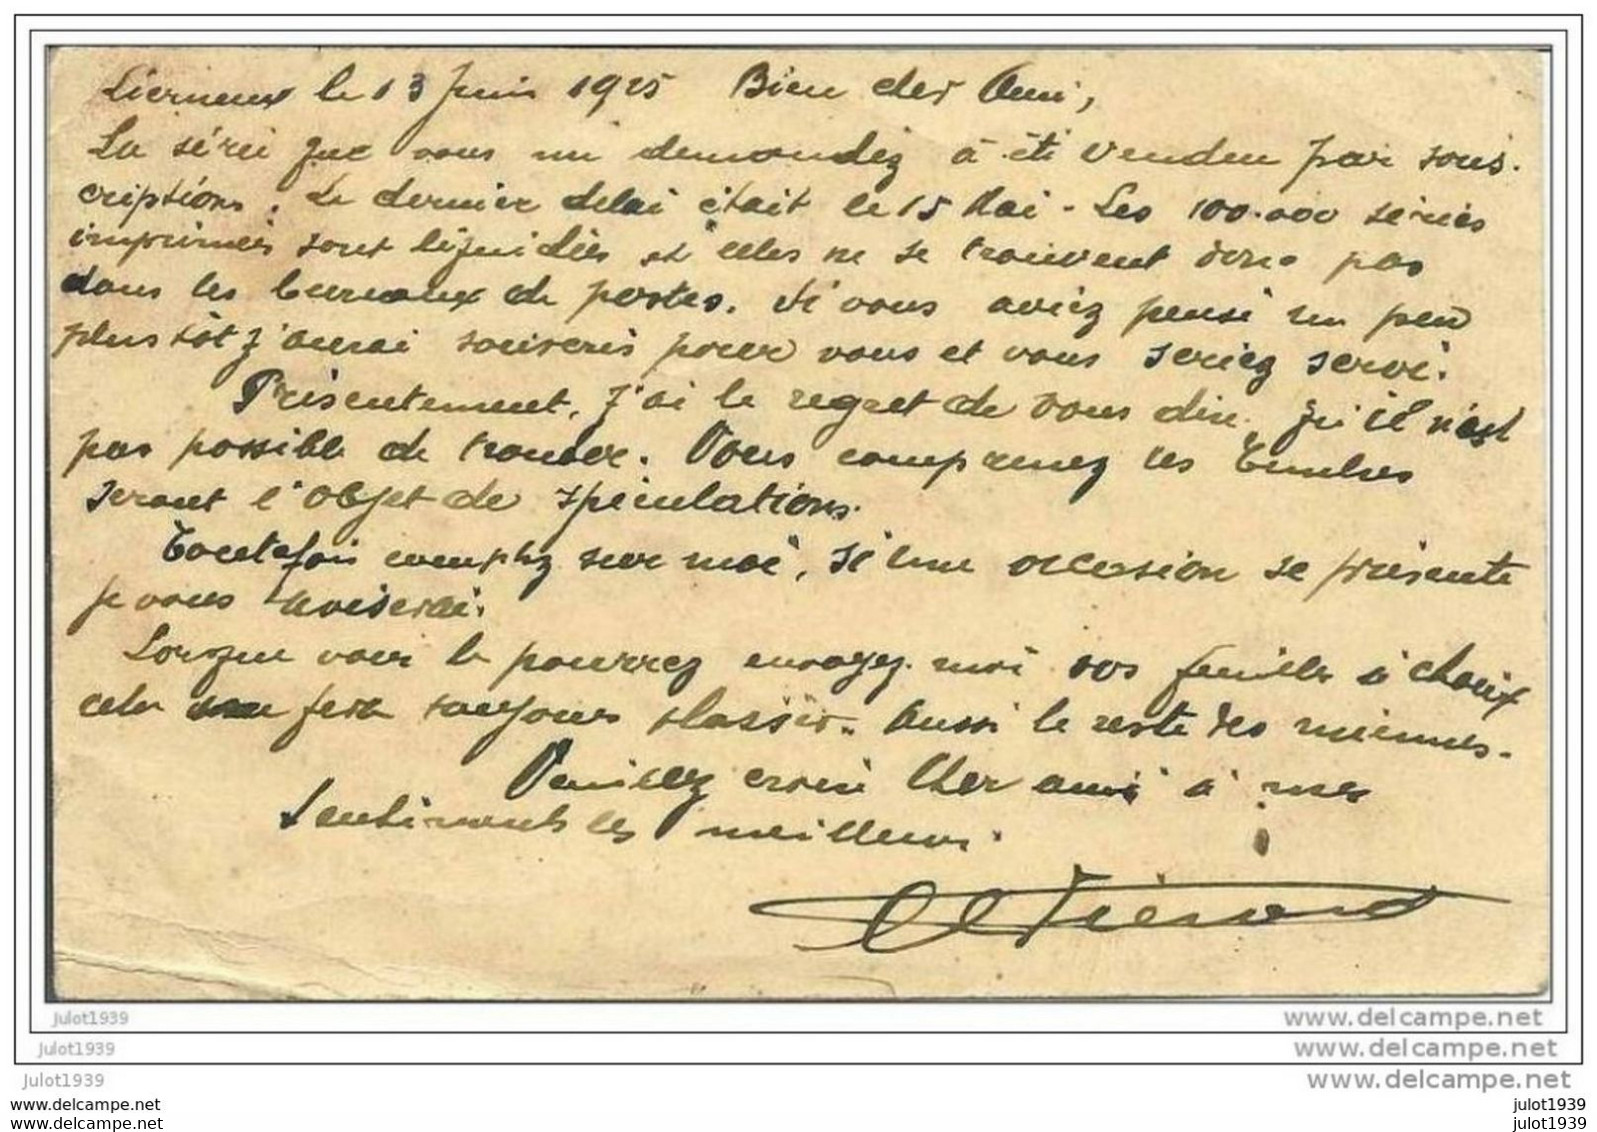 Lierneux le 13 Juin 1925 Bien cher Ami,
La série que vous me demandez à été vendue par sous-
criptions. Le dernier délai était le 15 Mai - Les 100.000 séries
imprimées sont liquidées et elles ne se trouvent donc pas
dans les bureaux de postes. Si vous aviez pensé un peu
plus tôt j'aurai souscris pour vous et vous seriez servi.
Présentement, j'ai le regret de vous dire qu'il n'est
pas possible de trouver. Vous comprenez les timbres
seront l'objet de spéculations.
Toutefois comptez sur moi, si une occasion se présente
je vous aviserai.
Lorsque vous le pourrez envoyez-moi vos feuilles à choix
cela fera toujours plaisir. Aussi le reste des miennes.
Veuillez croire Cher ami à mes
sentiments les meilleurs.
julot1939
www.delcampe.net
julot1939
www.delcampe.net
julot1939
www.delcampe.net
julot1939
julot1939
julot1939
julot1939